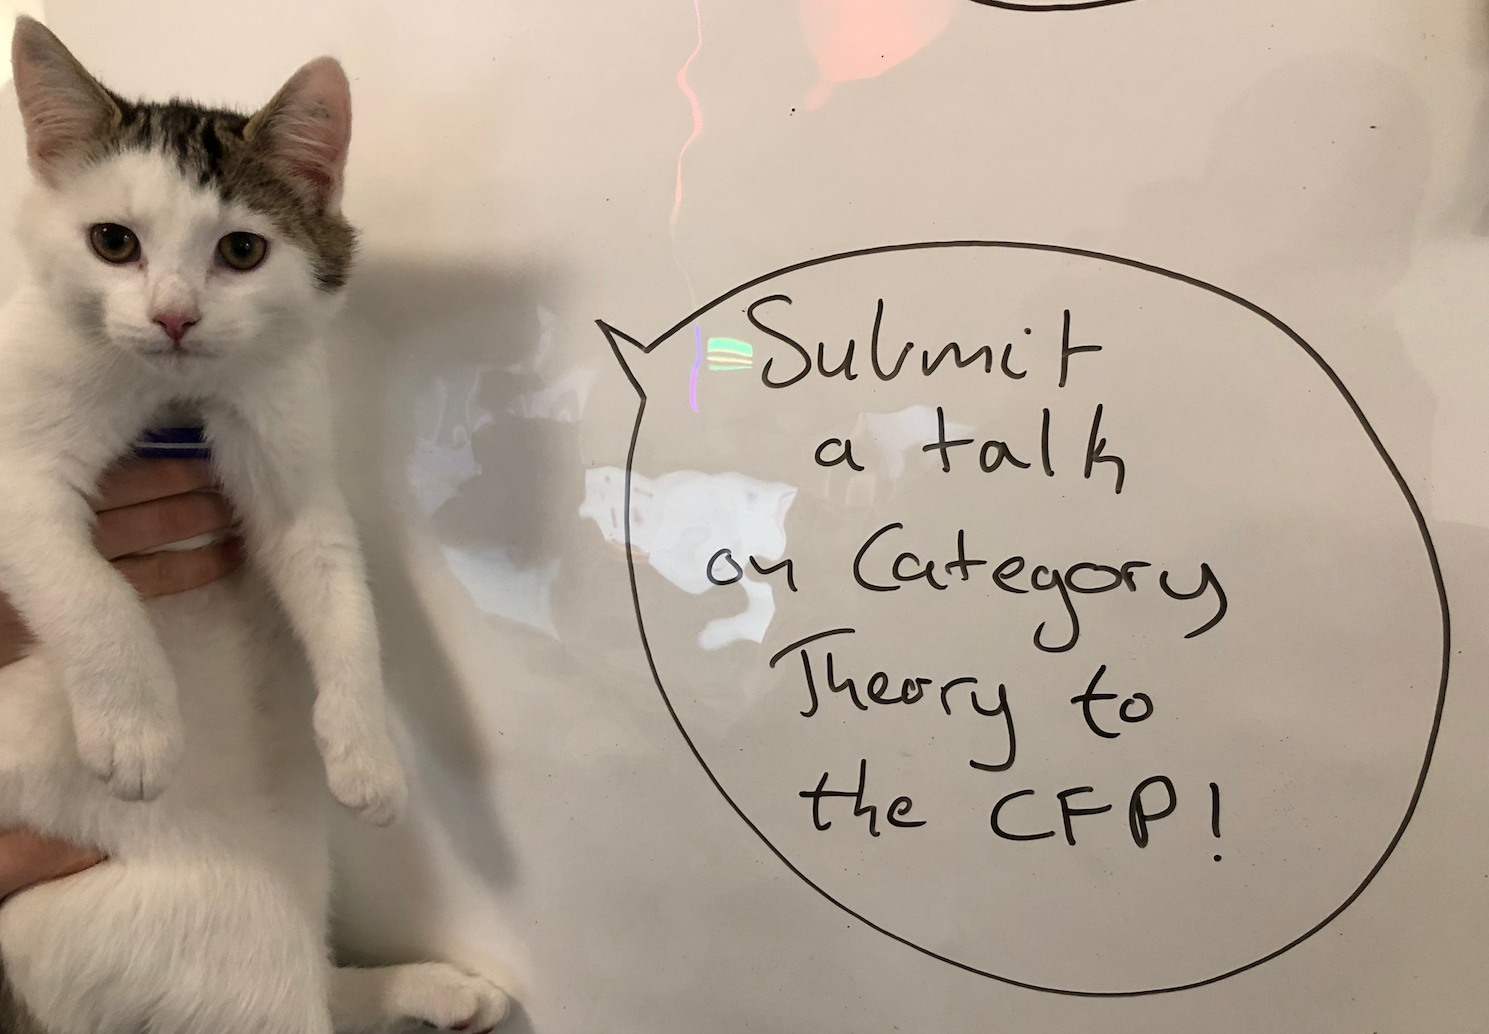 Submit
a talk
on Category
Theory to
the CFP!